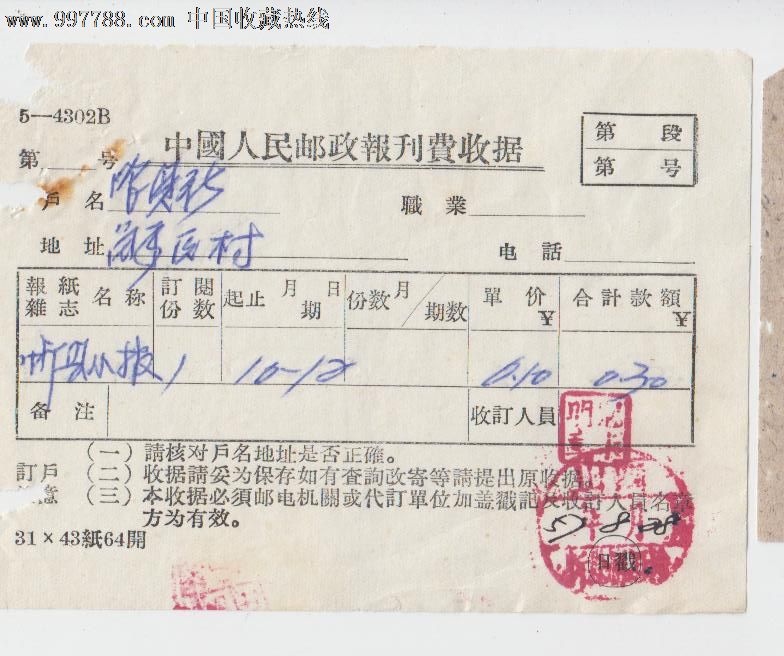 www.997788.com 中国收藏热线
5—4302B
中國人民邮政報刊費收据
第 段
第 号
第 号
戶名 職業
地址 村 电話
報紙雜志名称 訂閱份数 起止月日期 份数月/期数 單价¥ 合計款額¥
小报 1 10-12 0.10 0.30
备注 收訂人員
訂戶 意
(一)請核对戶名地址是否正確。
(二)收据請妥为保存如有查詢改寄等請提出原收据。
(三)本收据必須邮电机關或代訂單位加盖戳記及收訂人員名章
方为有效。
57 8 28
日戳
31×43紙64開